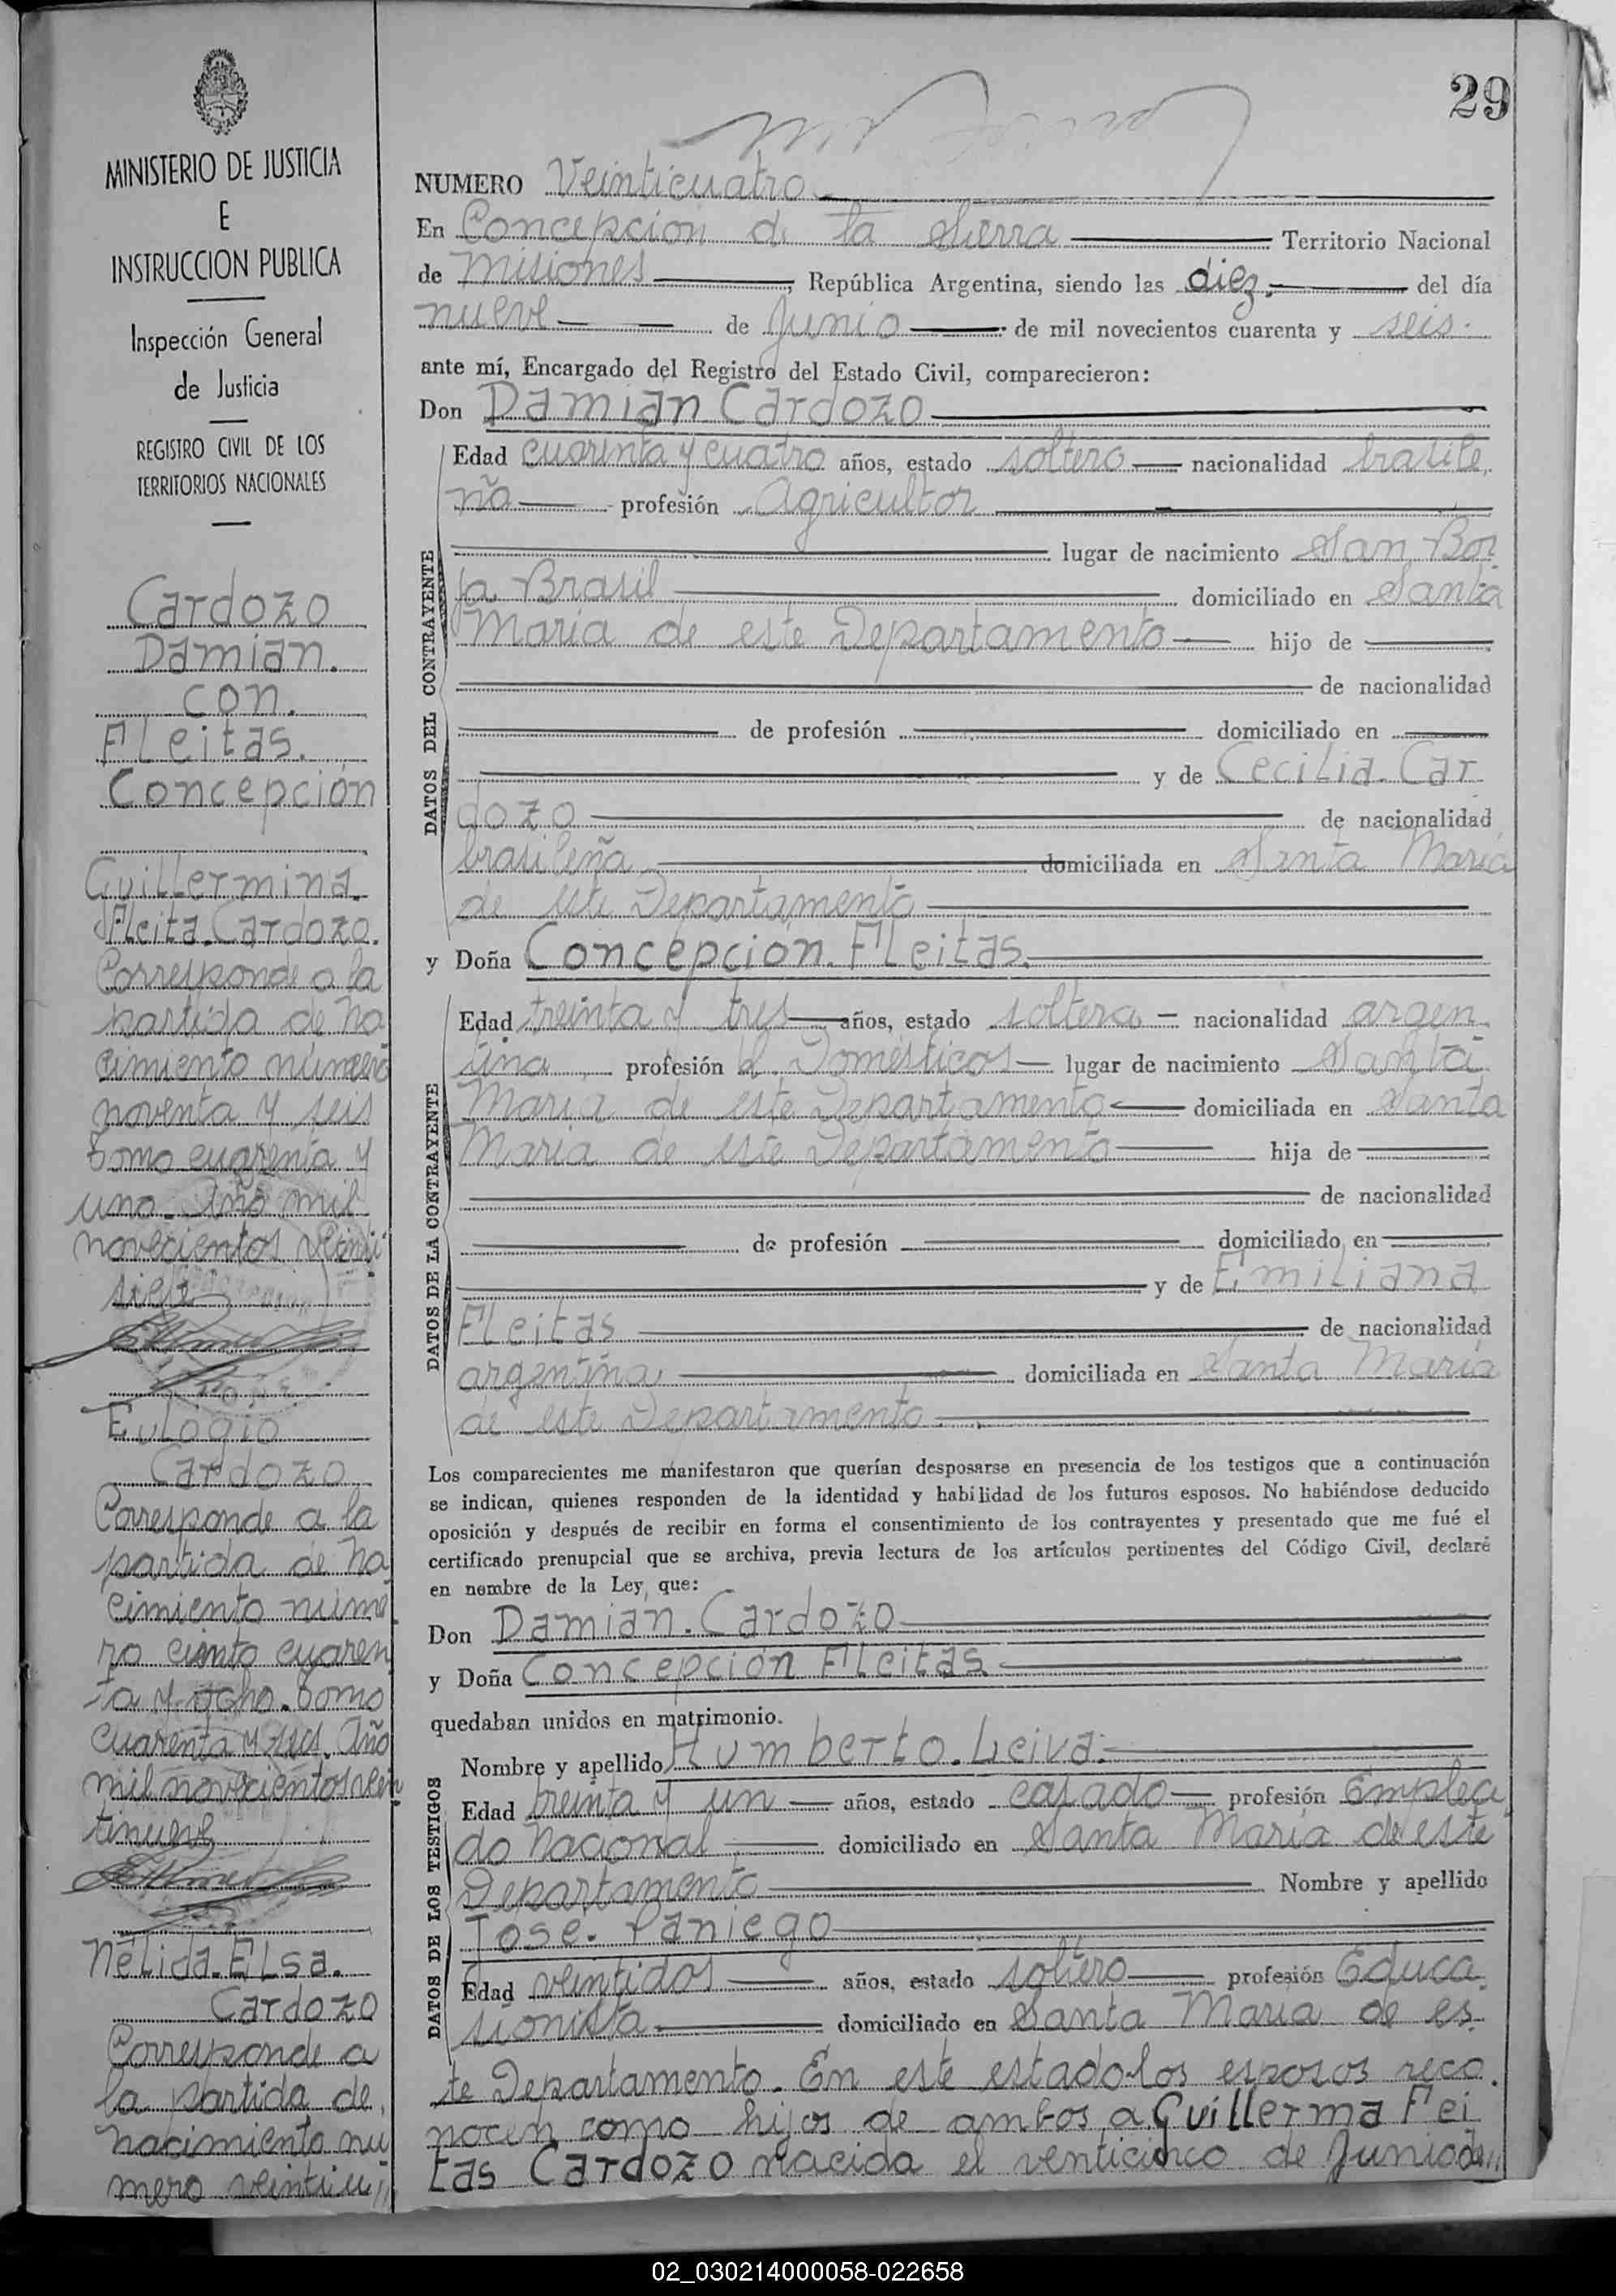 MINISTERIO DE JUSTICIA
E
INSTRUCCION PUBLICA
Inspección General
de Justicia
REGISTRO CIVIL DE LOS
TERRITORIOS NACIONALES
Cardozo
Damián.
con.
FLeitas.
Concepción
Guillermina.
Fleita.Cardozo.
Corresponde a la
partida de na
cimiento número
noventa y seis
tomo cuarenta y
uno. Año mil
novecientos veinti
siete
Eulogio
Cardozo
Corresponde a la
partida de na
cimiento núme
ro ciento cuaren
ta y ocho. tomo
cuarenta y seis. Año
mil novecientos vein
tinueve
Nélida.ELsa.
Cardozo
Corresponde a
la partida de
nacimiento nú
mero veintiu
29
NUMERO Veinticuatro
En Concepción de la Sierra Territorio Nacional
de Misiones, República Argentina, siendo las diez. del día
nueve de Junio de mil novecientos cuarenta y seis.
ante mí, Encargado del Registro del Estado Civil, comparecieron:
Don Damián Cardozo
DATOS DEL CONTRAYENTE
Edad cuarenta y cuatro años, estado soltero nacionalidad brasile
ño profesión Agricultor
lugar de nacimiento San Bor
ja Brasil domiciliado en Santa
María de este Departamento hijo de
de nacionalidad
de profesión domiciliado en
y de Cecilia.Car
dozo de nacionalidad
brasileña domiciliada en Santa María
de este Departamento
y Doña Concepción.FLeitas.
DATOS DE LA CONTRAYENTE
Edad treinta y tres años, estado soltera nacionalidad argen
tina profesión Q. Domésticos lugar de nacimiento Santa
María de este Departamento domiciliada en Santa
María de este Departamento hija de
de nacionalidad
de profesión domiciliado en
y de Emiliana
FLeitas de nacionalidad
argentina domiciliada en Santa María
de este Departamento
Los comparecientes me manifestaron que querían desposarse en presencia de los testigos que a continuación
se indican, quienes responden de la identidad y habilidad de los futuros esposos. No habiéndose deducido
oposición y después de recibir en forma el consentimiento de los contrayentes y presentado que me fué el
certificado prenupcial que se archiva, previa lectura de los artículos pertinentes del Código Civil, declaré
en nombre de la Ley que:
Don Damián.Cardozo
y Doña Concepción FLeitas
quedaban unidos en matrimonio.
DATOS DE LOS TESTIGOS
Nombre y apellido Humberto.Leiva.
Edad treinta y un años, estado casado profesión Emplea
do Nacional domiciliado en Santa María de este
Departamento Nombre y apellido
José.Paniego
Edad veintidos años, estado soltero profesión Educa
sionista domiciliado en Santa María de es
te Departamento. En este estado los esposos reco
nocen como hijos de ambos a Guillerma Fei
tas Cardozo nacida el venticinco de Junio de
02_030214000058-022658